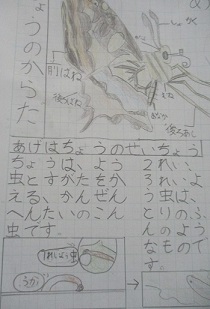 ょうのからた
前はね
後ろばね
あげはちょうのせいちょう
ちょうは、よう
虫とすがたをか
える、かんぜん
へんたいのこん
虫です。
2れい、
3れいよ
う虫は、
とりのふ
んのよう
なもので
す。
1れいよう虫
うか